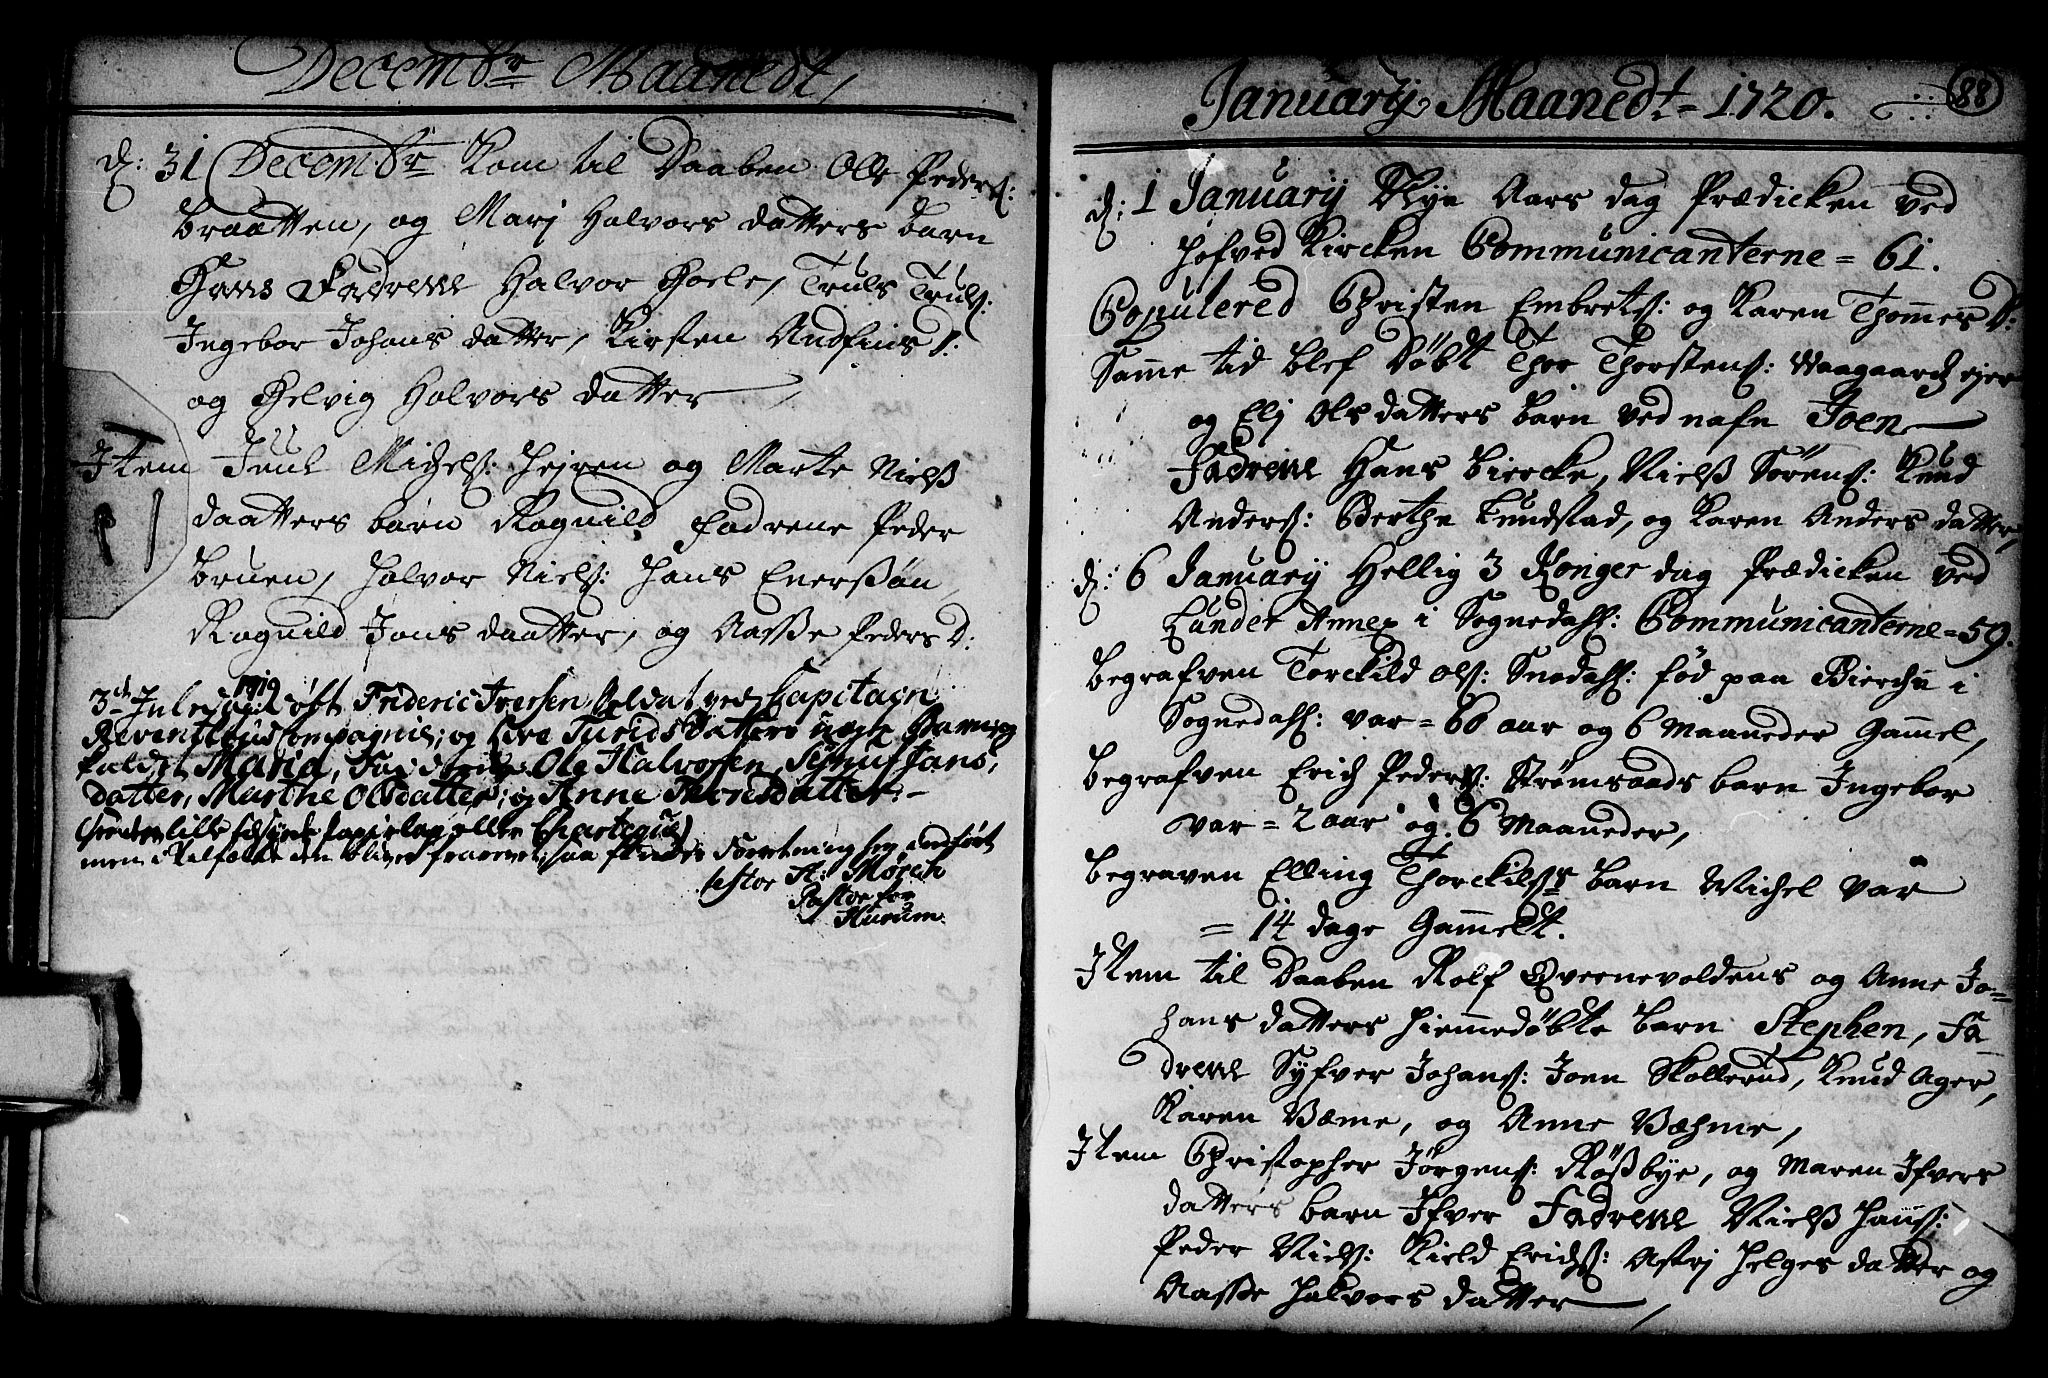 Decembr Maanedt,
d: 31 Decembr Kom til Daaben Olle Peders:
Braatten, og Marj Halvors datters barn
Hans Fadrene Halvor Hoele, Truls Truls:
Ingebor Johans datter, Kirsten Andfins d:
og Helvig Halvors datter
Item Juul Michels: Hejren og Marte Nielß
daatters barn Ragnild Fadrene Peder
Bruen, Halvor Niels: Hans Enersßøn,
Ragnild Jons daatter, og Aasße Peders D:
3de Juledag 1719 døbt Frideric Iversen Soldat ved Capitain
Reventlous Compagnie; og Siri Turids Datters Barn
kaldet Maria, Faddere Ole Halvorsen, Jans,
datter, Marthe Olsdatter; og Anne datter.-
lille Papirlap eller
men i Tilfælde den bliver saa findes Forretning her andført
testor H: Mørch
Pastor for
Hurum.
January Maanedt = 1720. 88
d: 1 January Nye Aars dag Prædicken ved
Hofved Kircken Communicanterne = 61.
Copulered Christen Embrets: og Karen Thommes D:
Samme tid blef Døbt Thor Thorstens: Waagaard ejer
og Elj Ols datters barn ved nafn Joen
Fadrene Hans Biercke, Nielß Sørens: Knud
Anders: Berthe Lundstad, og Karen Anders datter,
d: 6 January Hellig 3 Konger dag Prædicken ved
Lunder Annex i Sognedahl: Communicanterne = 59.
Begrafven Torckild Ols: Snedahl: fød paa Bierche i
Sognedahl: var = 60 aar og 6 Maaneder Gammel,
Begrafven Erich Peders: Strømsoads barn Ingebor
var = 2 aar og 6 Maaneder,
Begraven Elling Thorckilss barn Michel var
= 14 dage Gammelt.
Item til Daaben Rolf Qvernevoldens og Anne Jo=
hans datters Hiemmedøbte barn Stephen, Fa
drene Syfver Johans: Joen Skollerud, Knud Ager,
Karen Væme, og Anne Væhme,
Item Christopher Jørgens: Røßbye, og Maren Ifvers
datters barn Ifver Fadrene Nielß Hans:
Peder Niels: Kield Erichs: Astrj Helges datter og
Aasße Halvors datter